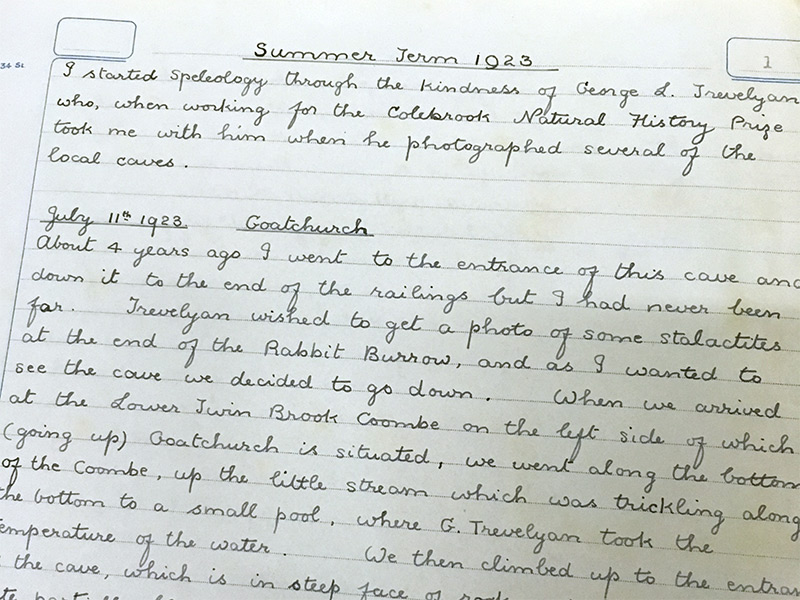 Summer Term 1923
1
34 St
I started speleology through the kindness of George L. Trevelyan
who, when working for the Colebrook Natural History Prize
took me with him when he photographed several of the
local caves.
July 11th 1923 Goatchurch
About 4 years ago I went to the entrance of this cave and
down it to the end of the railings but I had never been
far. Trevelyan wished to get a photo of some stalactites
at the end of the Rabbit Burrow, and as I wanted to
see the cave we decided to go down. When we arrived
at the Lower Twin Brook Coombe on the left side of which
(going up) Goatchurch is situated, we went along the bottom
of the Coombe, up the little stream which was trickling along
the bottom to a small pool, where G. Trevelyan took the
temperature of the water. We then climbed up to the entran
the cave, which is in steep face of